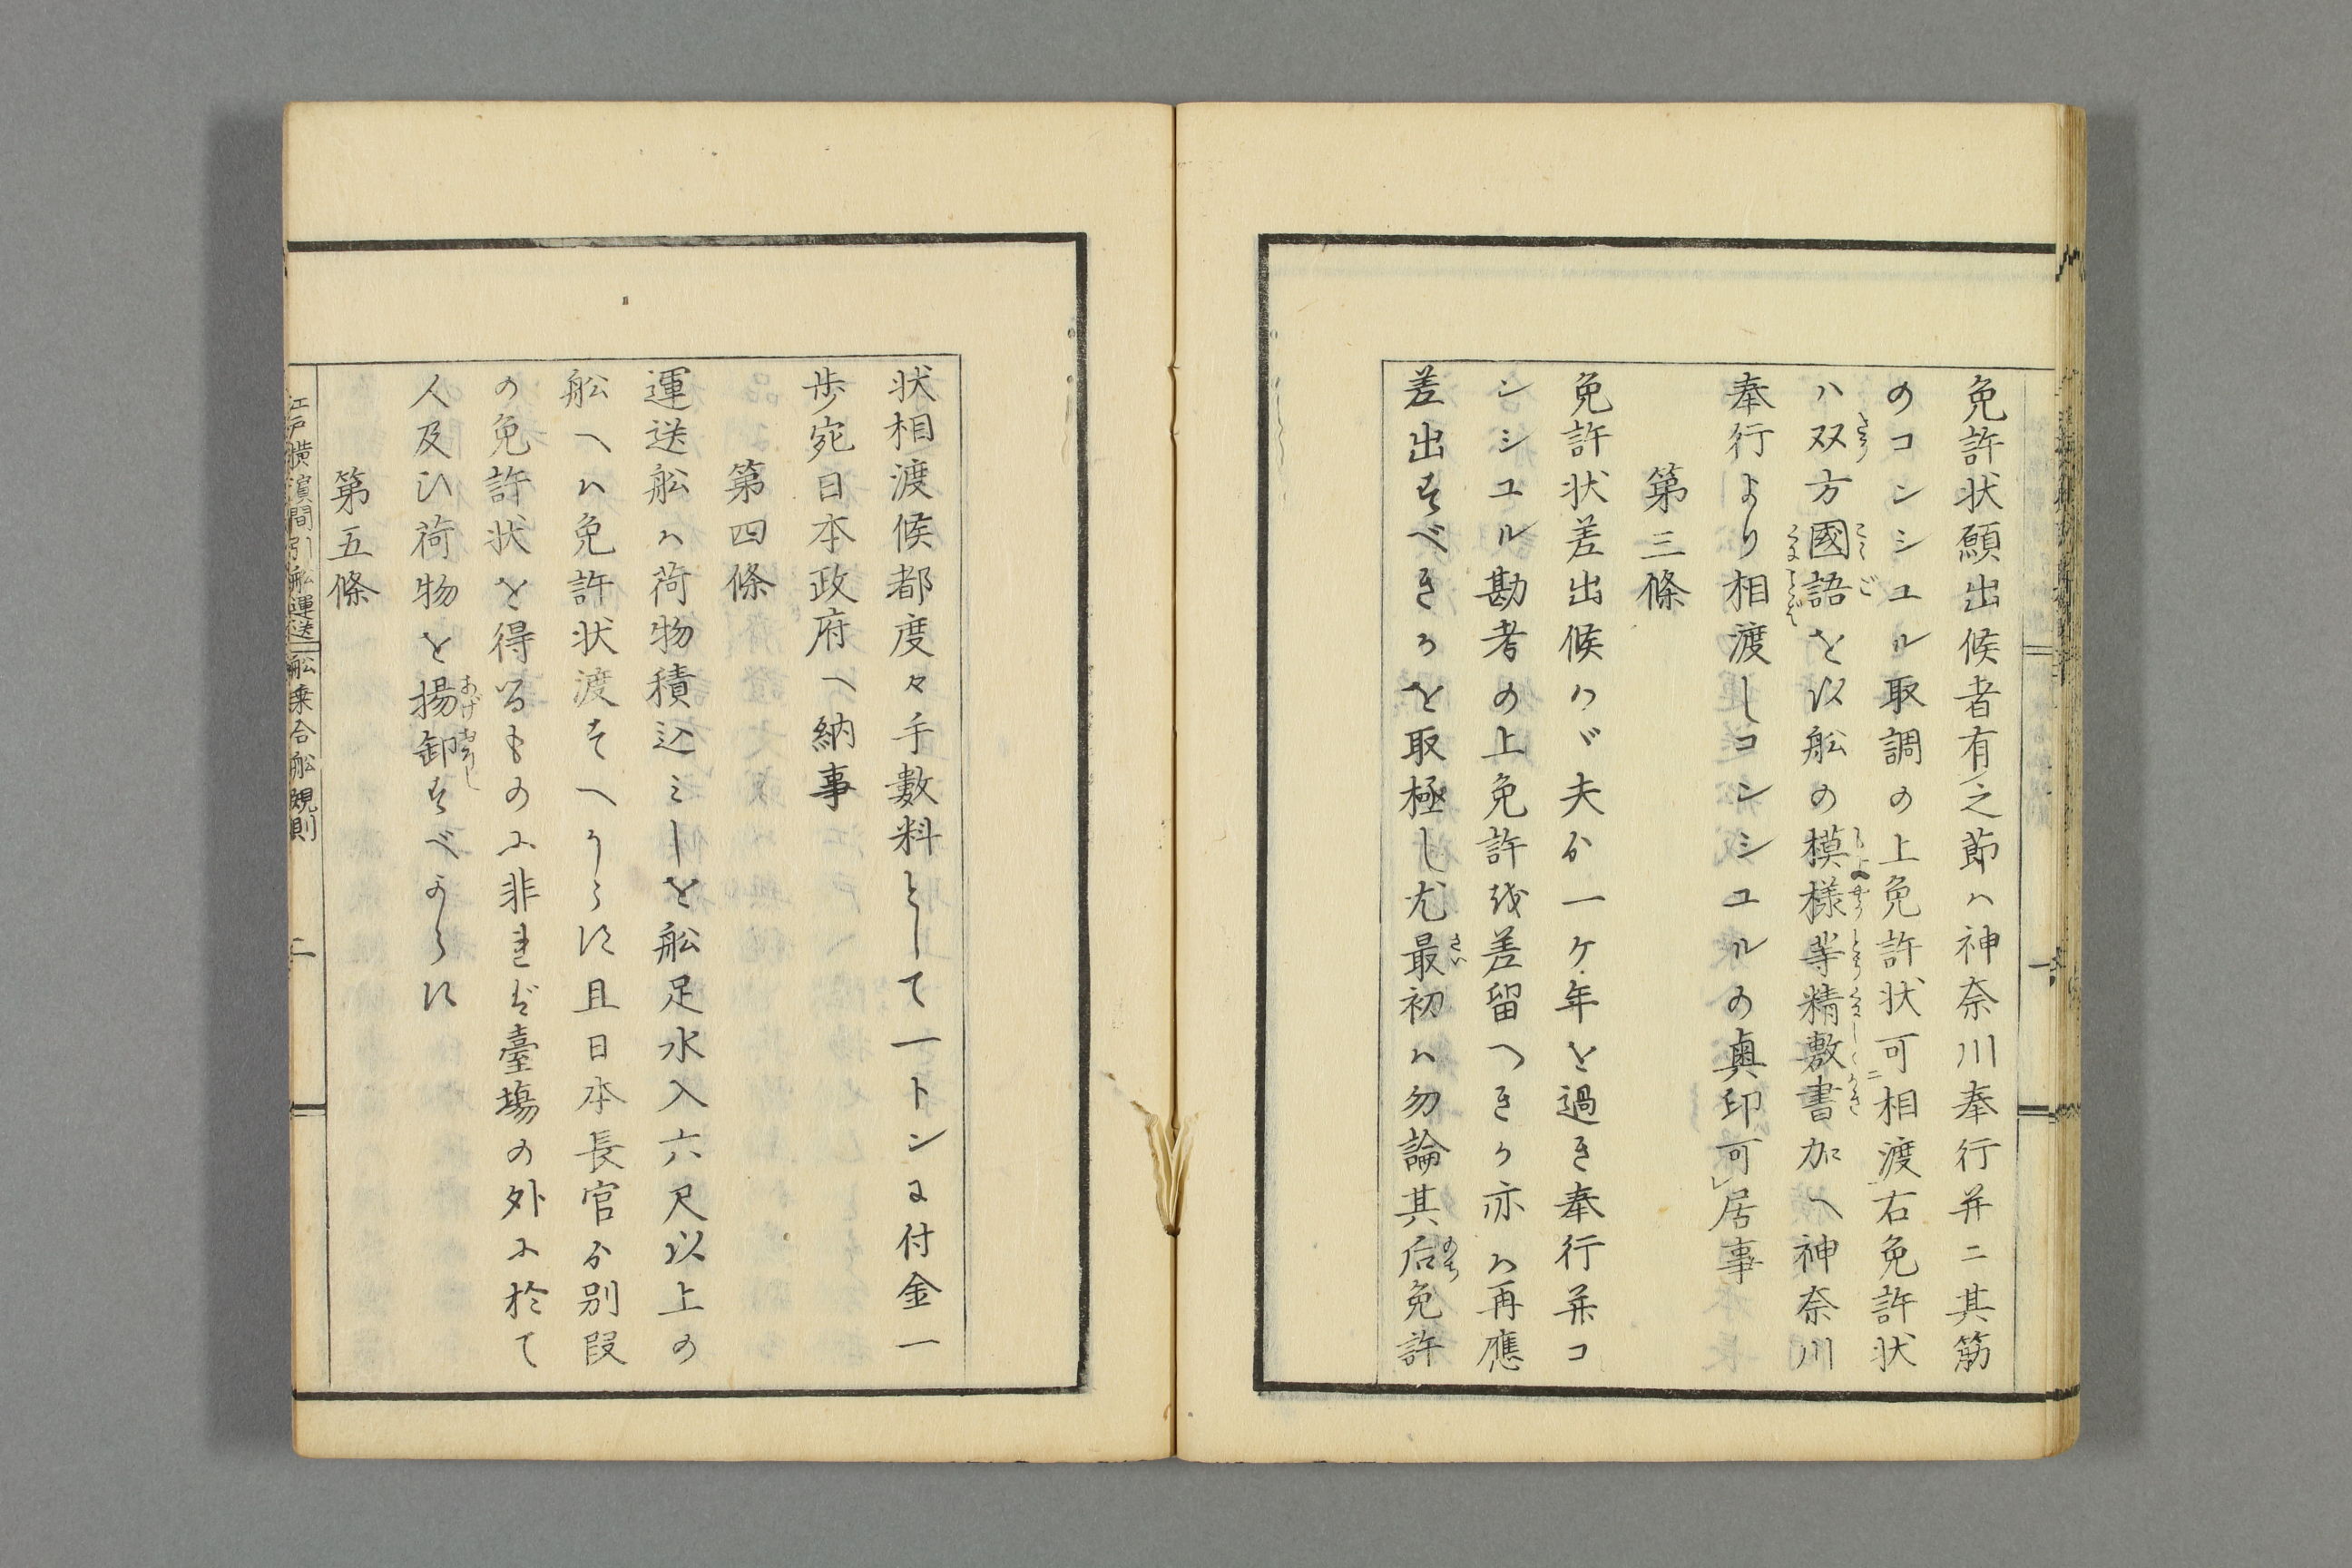 免許状願出候者有之節ハ神奈川奉行并ニ其筋
のコンシユル取調の上免許状可相渡右免許状
ハ双方國語を以船の模様等精敷書加へ神奈川
奉行より相渡しコンシユルの奥印可居事
第三條
免許状差出候ハヾ夫ゟ一ケ年を過き奉行并コ
ンシユル勘考の上免許状差留へきか亦ハ再應
差出すべきかを取極し尤最初ハ勿論其后免許
状相渡候都度々手數料として一トンに付金一
歩宛日本政府へ納事
第四條
運送舩ハ荷物積込ミしを舩足水入六尺以上の
舩へハ免許状渡すへからす且日本長官ゟ別段
の免許状を得るものに非れば臺場の外に於て
人及ひ荷物を揚卸すべからす
第五條
江戸横濱間引舩運送舩乗合舩規則
二